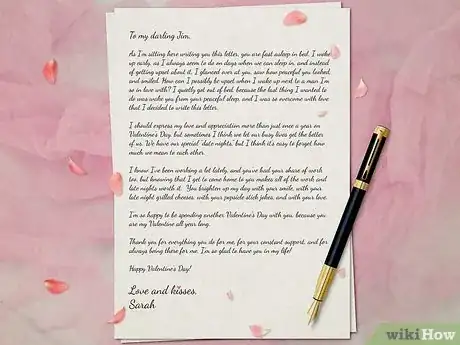 To my darling Jim,
As I'm sitting here writing you this letter, you are fast asleep in bed. I woke
up early, as I always seem to do on days when we can sleep in, and instead
of getting upset about it, I glanced over at you, saw how peaceful you looked,
and smiled. How can I possibly be upset when I wake up next to a man I'm
so in love with? I quietly got out of bed, because the last thing I wanted to
do was wake you from your peaceful sleep, and I was so overcome with love
that I decided to write this letter.
I should express my love and appreciation more than just once a year on
Valentine's Day, but sometimes I think we let our busy lives get the better
of us. We have our special "date nights," but I think it's easy to forget how
much we mean to each other.
I know I've been working a lot lately, and you've had your share of work
too, but knowing that I get to come home to you makes all of the work and
late nights worth it. You brighten up my day with your smile, with your
late night grilled cheeses, with your popsicle stick jokes, and with your love.
I'm so happy to be spending another Valentine's Day with you, because you
are my Valentine all year long.
Thank you for everything you do for me, for your constant support, and for
always being there for me. I'm so glad to have you in my life!
Happy Valentine's Day!
Love and kisses,
Sarah
wikiHow